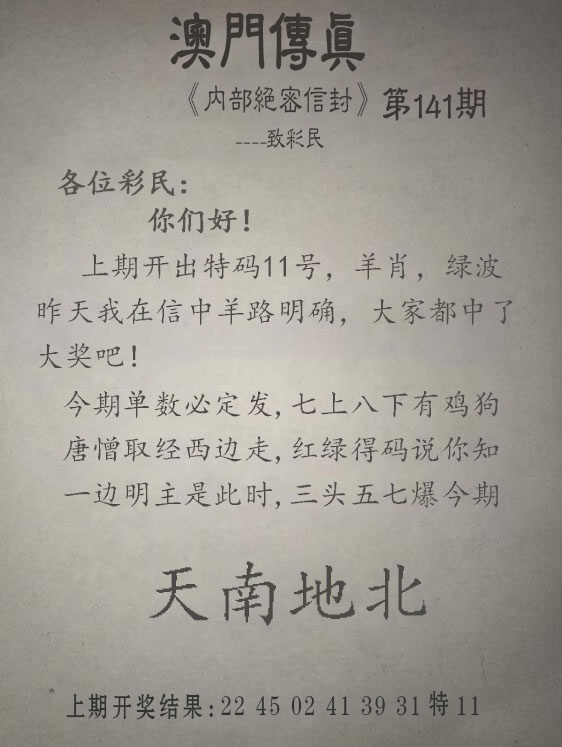 澳門傳真
《内部絕密信封》第141期
----致彩民
各位彩民：
你们好！
上期开出特码11号，羊肖，绿波
昨天我在信中羊路明确，大家都中了
大奖吧！
今期单数必定发,七上八下有鸡狗
唐憎取经西边走,红绿得码说你知
一边明主是此时,三头五七爆今期
天南地北
上期开奖结果:22 45 02 41 39 31特11